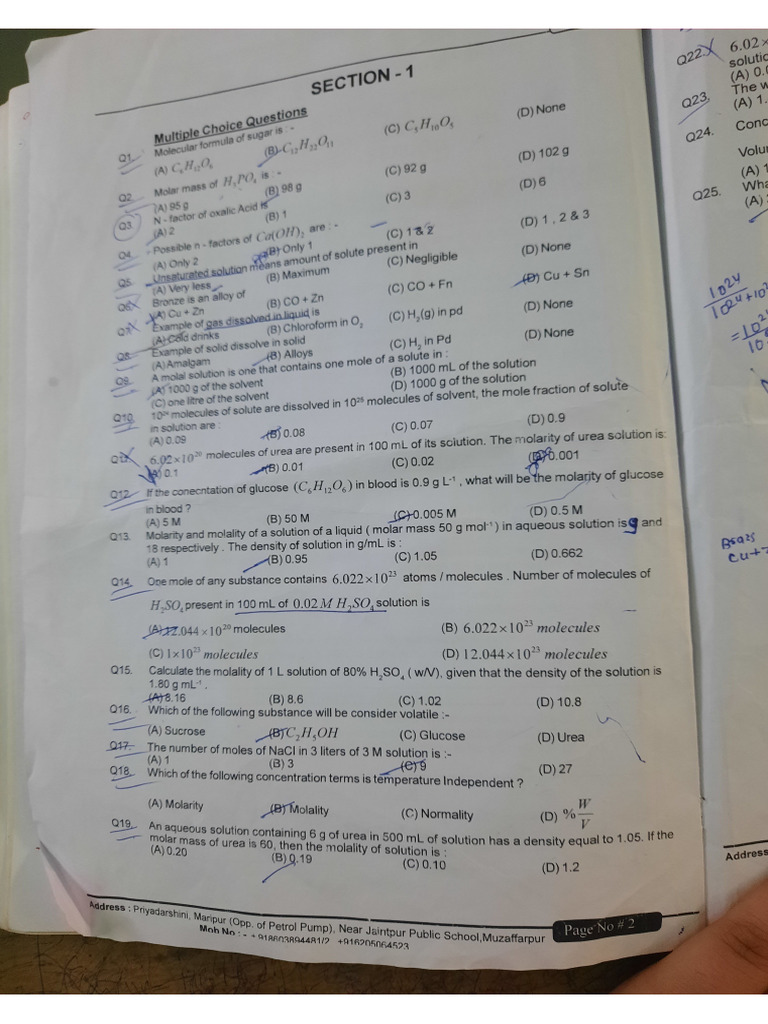 SECTION - 1
Multiple Choice Questions
Q1. Molecular formula of sugar is : -
(A) C₆H₁₂O₆ (B) C₁₂H₂₂O₁₁ (C) C₅H₁₀O₅ (D) None
Q2. Molar mass of H₃PO₄ is : -
(A) 95 g (B) 98 g (C) 92 g (D) 102 g
Q3. N - factor of oxalic Acid is
(A) 2 (B) 1 (C) 3 (D) 6
Q4. Possible n - factors of Ca(OH)₂ are : -
(A) Only 2 (B) Only 1 (C) 1 & 2 (D) 1 , 2 & 3
Q5. Unsaturated solution means amount of solute present in
(A) Very less (B) Maximum (C) Negligible (D) None
Q6. Bronze is an alloy of
(A) Cu + Zn (B) CO + Zn (C) CO + Fn (D) Cu + Sn
Q7. Example of gas dissolved in liquid is
(A) Cold drinks (B) Chloroform in O₂ (C) H₂(g) in pd (D) None
Q8. Example of solid dissolve in solid
(A) Amalgam (B) Alloys (C) H₂ in Pd (D) None
Q9. A molal solution is one that contains one mole of a solute in :
(A) 1000 g of the solvent (B) 1000 mL of the solution
(C) one litre of the solvent (D) 1000 g of the solution
Q10. 10²⁴ molecules of solute are dissolved in 10²⁵ molecules of solvent, the mole fraction of solute
in solution are :
(A) 0.09 (B) 0.08 (C) 0.07 (D) 0.9
Q11. 6.02×10²⁰ molecules of urea are present in 100 mL of its sciution. The molarity of urea solution is:
(A) 0.1 (B) 0.01 (C) 0.02 (D) 0.001
Q12. If the conecntation of glucose (C₆H₁₂O₆) in blood is 0.9 g L⁻¹ , what will be the molarity of glucose
in blood ?
(A) 5 M (B) 50 M (C) 0.005 M (D) 0.5 M
Q13. Molarity and molality of a solution of a liquid ( molar mass 50 g mol⁻¹ ) in aqueous solution is 9 and
18 respectively . The density of solution in g/mL is :
(A) 1 (B) 0.95 (C) 1.05 (D) 0.662
Q14. One mole of any substance contains 6.022×10²³ atoms / molecules . Number of molecules of
H₂SO₄ present in 100 mL of 0.02 M H₂SO₄ solution is
(A) 12.044×10²⁰ molecules (B) 6.022×10²³ molecules
(C) 1×10²³ molecules (D) 12.044×10²³ molecules
Q15. Calculate the molality of 1 L solution of 80% H₂SO₄ ( w/V), given that the density of the solution is
1.80 g mL⁻¹ .
(A) 8.16 (B) 8.6 (C) 1.02 (D) 10.8
Q16. Which of the following substance will be consider volatile :-
(A) Sucrose (B) C₂H₅OH (C) Glucose (D) Urea
Q17. The number of moles of NaCl in 3 liters of 3 M solution is :-
(A) 1 (B) 3 (C) 9 (D) 27
Q18. Which of the following concentration terms is temperature Independent ?
(A) Molarity (B) Molality (C) Normality (D) % W/V
Q19. An aqueous solution containing 6 g of urea in 500 mL of solution has a density equal to 1.05. If the
molar mass of urea is 60, then the molality of solution is :
(A) 0.20 (B) 0.19 (C) 0.10 (D) 1.2
Address : Priyadarshini, Maripur (Opp. of Petrol Pump), Near Jaintpur Public School,Muzaffarpur
Mob No : - +918603894481/2, +916205064523
Page No # 2
Q22. 6.02×
solutio
(A) 0.0
Q23. The w
(A) 1.
Q24. Conc
Volu
(A) 1
Q25. Wha
(A)
10²⁴
Cu+
Address